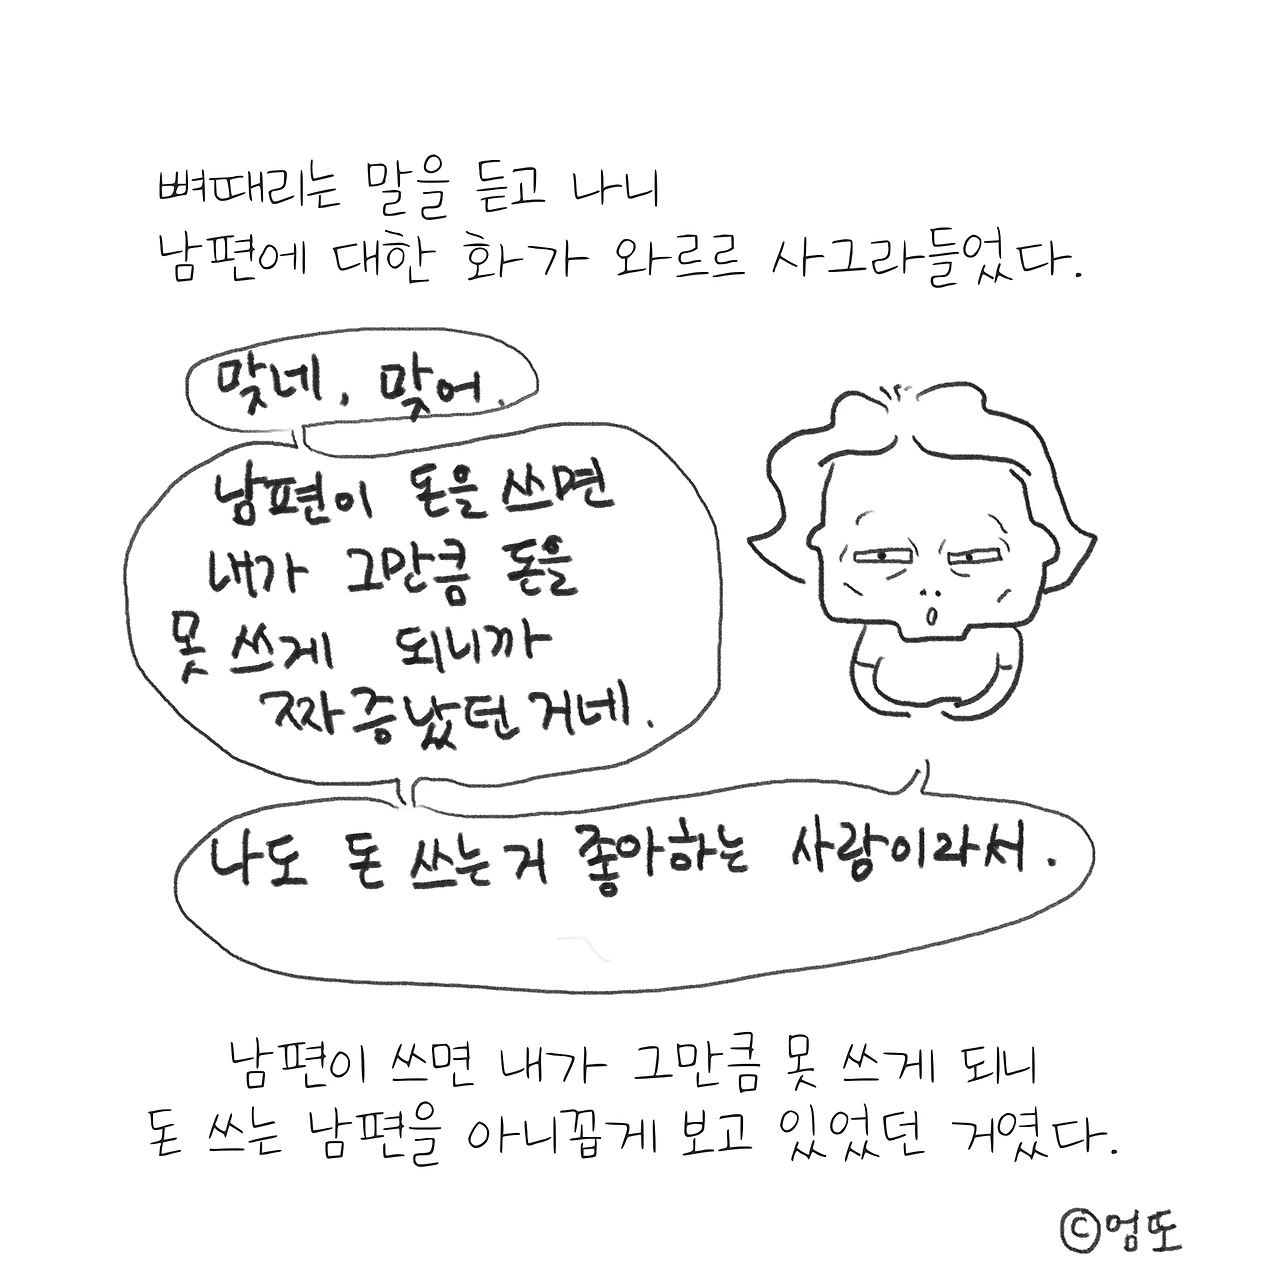 뼈때리는 말을 듣고 나니
남편에 대한 화가 와르르 사그라들었다.
맞네, 맞어.
남편이 돈을 쓰면
내가 그만큼 돈을
못 쓰게 되니까
짜증났던거네.
나도 돈 쓰는거 좋아하는 사람이라서.
남편이 쓰면 내가 그만큼 못 쓰게 되니
돈 쓰는 남편을 아니꼽게 보고 있었던 거였다.
ⓒ엄또